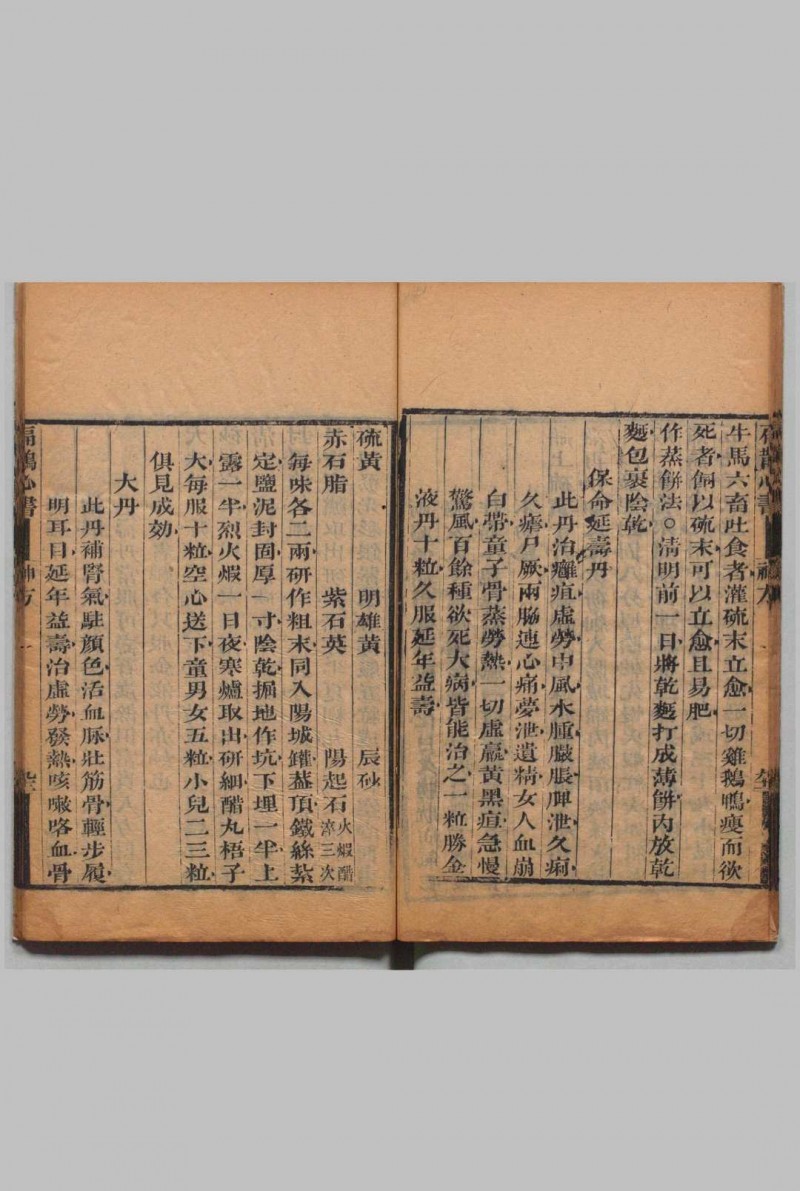 牛馬六畜吐食者灌硫末立愈一切雞鵝鴨瘦而欲
死者餇以硫末可以立愈且易肥
作蒸餅法○淸明前一日將乾麵打成薄餅內放乾
麵包裹陰乾
保命延壽丹
此丹治癰疽虛勞中風水腫臌脹脾泄久痢
久瘧尸厥兩脇連心痛夢泄遺精女人血崩
白帶童子骨蒸勞熱一切虛羸黃黑疸急慢
驚風百餘種欲死大病皆能治之一粒勝金
液丹十粒久服延年益壽
硫黃 明雄黃 辰砂
赤石脂 紫石英 陽起石火煆醋淬三次
每味各二兩研作粗末同入陽城鑵葢頂鐵絲紥
定鹽泥封固厚一寸陰乾掘地作坑下埋一半上
露一半烈火煆一日夜寒爐取出研細醋丸梧子
大每服十粒空心送下童男女五粒小兒二三粒
俱見成効
大丹
此丹補腎氣駐顏色活血脈壯筋骨輕步履
明耳目延年益壽治虛勞發熱咳嗽咯血骨
扁鵲心書 神方